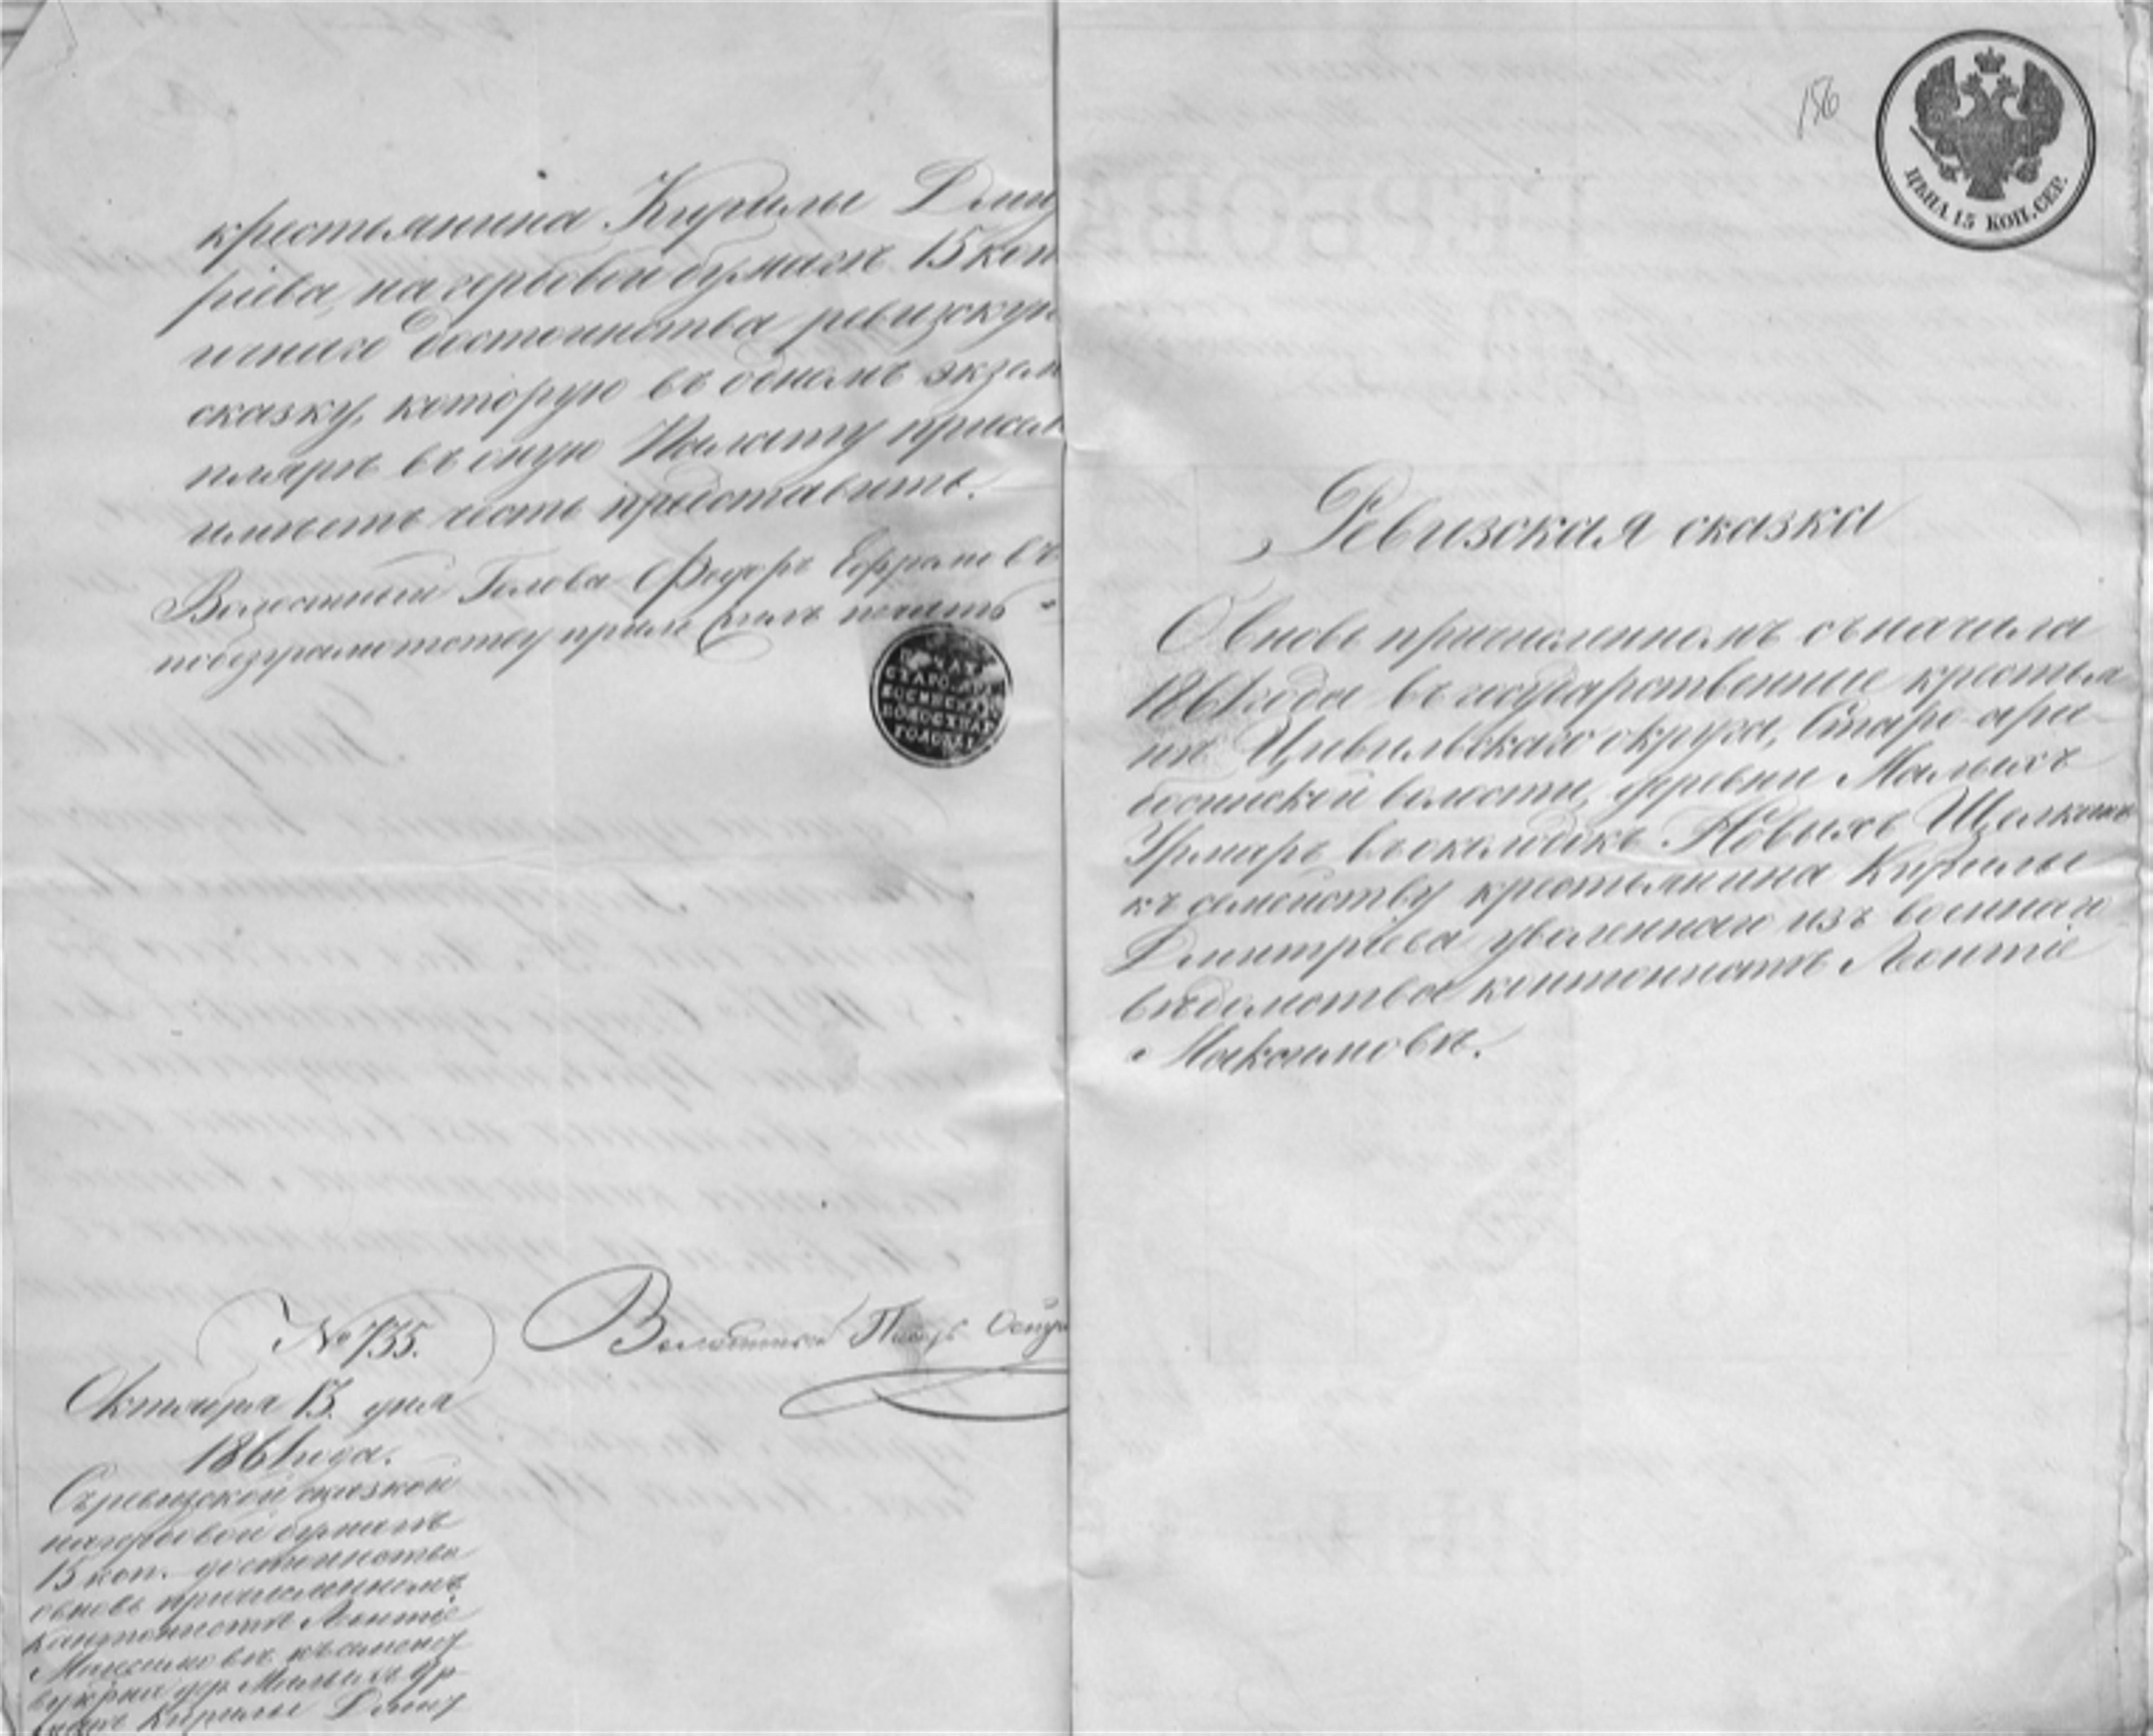 крестьянина Кирилы Дмит
ріева, на гербовой бумагѣ 15 коп
ѣчнаго достоинства ревизскую
сказку, которую въ одномъ экзем
плярѣ въ оную Палату при семъ
имѣетъ честь представить.
Волостный Голова Федоръ Ефремовъ
по безграмотству приложилъ печать
ПЕЧАТЬ
СТАРО
ВОЛОСТНАГО
ГОЛОВЫ
№ 735.
Волостной Писарь
Октября 13. дня
1861 года.
Съ ревизской сказкой
на гербовой бумагѣ
15 коп. достоинства
о вновь причисленномъ
кантонистѣ Леонтіѣ
Максимовѣ къ семейст
ву крна дер. Малыхъ Ур
маръ Кирилы Дмит
156
ЦѢНА 15 КОП. СЕР.
Ревизская сказка
О вновь причисленномъ съ начала
1861 года въ государственные крестья
не Цивильскаго округа, Старо-ара
босинской волости, деревни Малыхъ
Урмаръ въ околодкѣ Новыхъ Щелканъ
къ семейству крестьянина Кирилы
Дмитріева уволеннаго изъ военнаго
вѣдомства кантонистѣ Леонтіѣ
Максимовѣ.